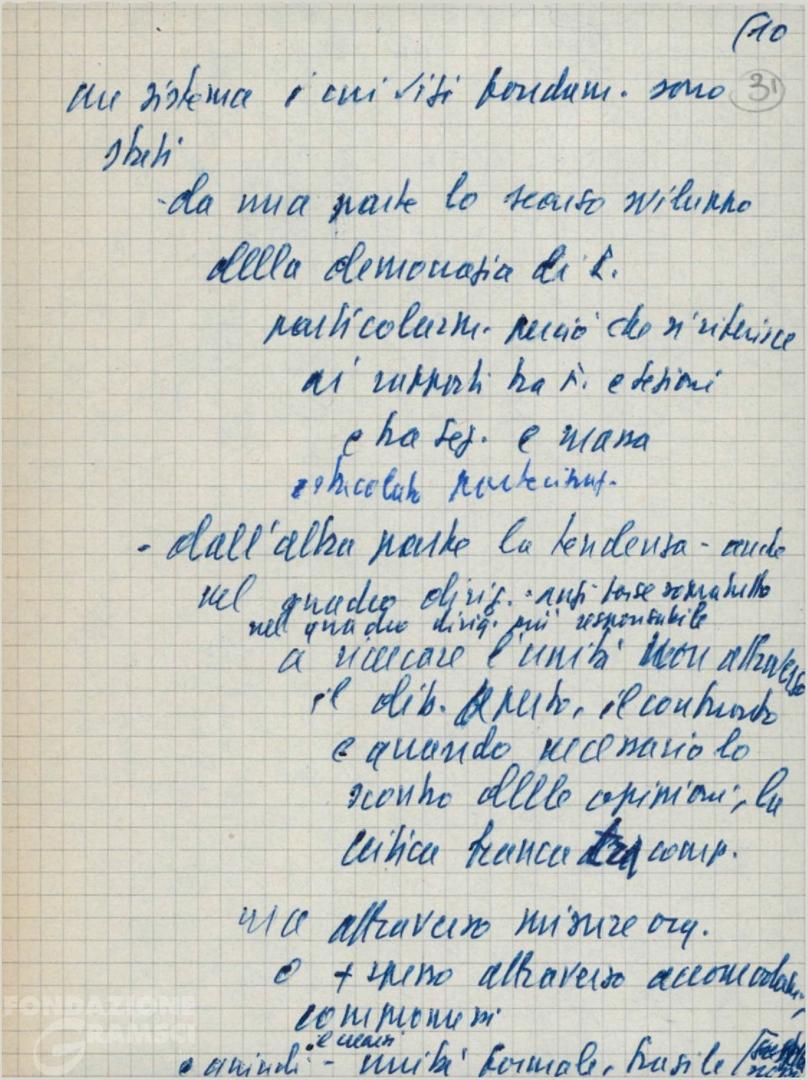 (10
31
un sistema i cui vizi fondam. sono
stati
- da una parte lo scarso sviluppo
della democrazia di P.
particolarm. perciò che si riferisce
ai rapporti tra F. e sezioni
e tra sez. e massa
partecipaz.
- dall'altra parte la tendenza - anche
nel quadro dirig. - anzi forse soprattutto
nel quadro dirig. più responsabile
a ricercare l'unità non attraverso
il dib. aperto, il confronto
e quando necessario lo
scontro delle opinioni, la
critica franca tra comp.
ma attraverso misure org.
o + spesso attraverso accomodam.,
compromessi
e quindi - unità formale, fragile
FONDAZIONE
GRAMSCI